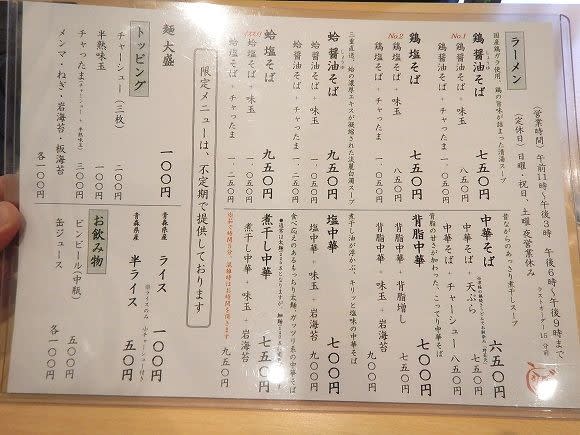 ラーメン
(営業時間) 午前11時～午後3時 午後6時～午後9時まで
ラストオーダー15分前
(定休日) 日曜・祝日、土曜夜営業休み
国産鶏ガラ使用、鶏の旨味が詰まった清湯スープ
鶏醤油そば 七五〇円
No.1 鶏醤油そば + 味玉 八五〇円
鶏醤油そば + チャったま 一、〇五〇円
鶏塩そば 七五〇円
No.2 鶏塩そば + 味玉 八五〇円
鶏塩そば + チャったま 一、〇五〇円
三重直送、蛤の濃厚エキスが凝縮された淡麗白湯スープ
蛤醤油そば 九五〇円
蛤醤油そば + 味玉 一、〇五〇円
蛤醤油そば + チャったま 一、二五〇円
蛤塩そば 九五〇円
蛤塩そば + 味玉 一、〇五〇円
蛤塩そば + チャったま 一、二五〇円
昔ながらのあっさり煮干しスープ
中華そば 六五〇円
中華そば + 天ぷら 七五〇円
中華そば + チャーシュー 八五〇円
背脂の甘さが加わった、こってり中華そば
背脂中華 七〇〇円
背脂中華 + 背脂増し 七五〇円
背脂中華 + 味玉 + 岩海苔 九〇〇円
煮干し油が浮かぶ、キリッと塩味の中華そば
塩中華 七〇〇円
塩中華 + 味玉 + 岩海苔 九〇〇円
食べ応えのあるもっちり太麺、ガッツリ系の中華そば
煮干し中華 七五〇円
煮干し中華 + 味玉 + 岩海苔 九五〇円
限定メニューは、不定期で提供しております
麺 大盛 一〇〇円
トッピング
チャーシュー (三枚) 二〇〇円
半熟味玉 一〇〇円
チャったま (チャーシュー + 半熟味玉) 三〇〇円
メンマ・ねぎ・岩海苔・板海苔 各一〇〇円
青森県産 ライス 一〇〇円
青森県産 半ライス 五〇円
お飲み物
ビンビール(中瓶) 五〇〇円
缶ジュース 各一〇〇円